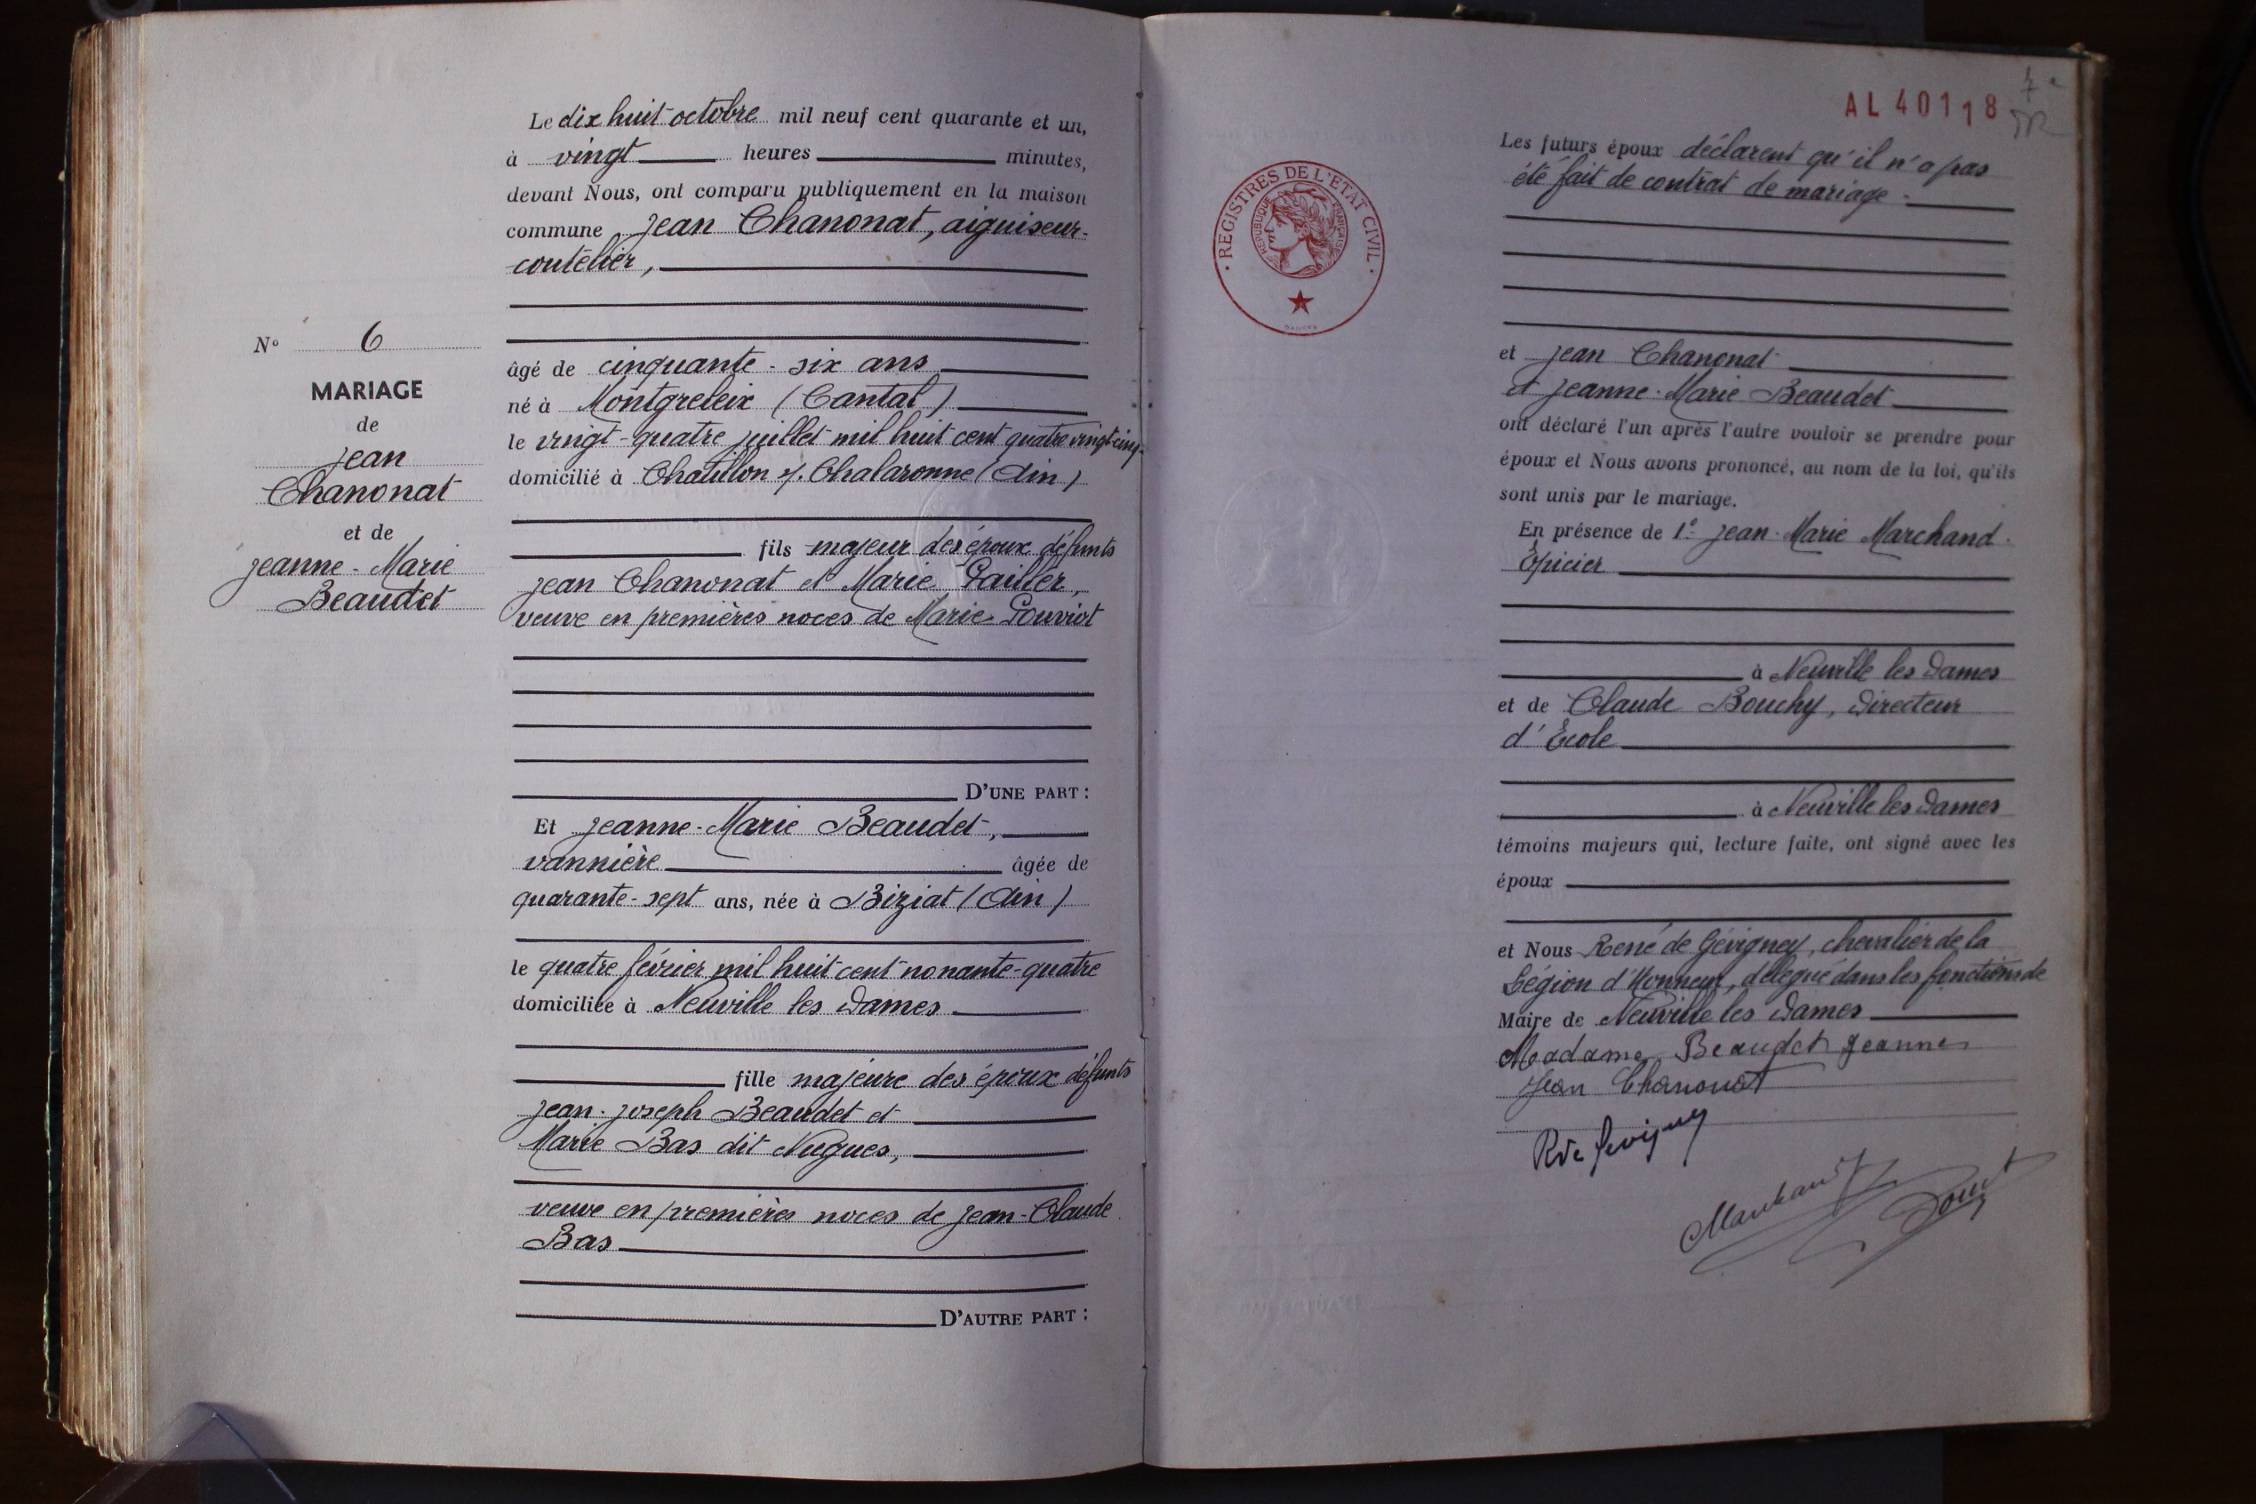 Le dix huit octobre mil neuf cent quarante et un,
à vingt heures minutes,
devant Nous, ont comparu publiquement en la maison
commune Jean Chanonat, aiguiseur-
coutelier,
N° 6
MARIAGE
de
Jean
Chanonat
et de
Jeanne-Marie
Beaudet
âgé de cinquante-six ans
né à Montgreleix (Cantal)
le vingt-quatre juillet mil huit cent quatre vingt cinq
domicilié à Chatillon s/. Chalaronne (Ain)
fils majeur des époux défunts
Jean Chanonat et Marie Pailler,
veuve en premières noces de Marie Pouviot
D'UNE PART :
Et Jeanne-Marie Beaudet,
vannière âgée de
quarante-sept ans, née à Biziat (Ain)
le quatre février mil huit cent nonante-quatre
domiciliée à Neuville les Dames
fille majeure des époux défunts
Jean-Joseph Beaudet et
Marie Bas dit Nugues,
veuve en premières noces de Jean-Claude
Bas
D'AUTRE PART :
AL 40118
REGISTRES DE L'ETAT CIVIL
REPUBLIQUE FRANÇAISE
Les futurs époux déclarent qu'il n'a pas
été fait de contrat de mariage.
et Jean Chanonat
et Jeanne-Marie Beaudet
ont déclaré l'un après l'autre vouloir se prendre pour
époux et Nous avons prononcé, au nom de la loi, qu'ils
sont unis par le mariage.
En présence de 1° Jean-Marie Marchand.
Épicier
à Neuville les Dames
et de Claude Bouchy, Directeur
d'École
à Neuville les Dames
témoins majeurs qui, lecture faite, ont signé avec les
époux
et Nous René de Gévigney, chevalier de la
Légion d'Honneur, délégué dans les fonctions de
Maire de Neuville les Dames
Madame Beaudet Jeanne
Jean Chanonat
R de Gevigney
Marchand